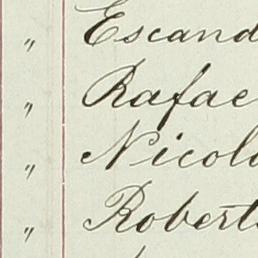 " Escand
" Rafae
" Nicol
" Robert